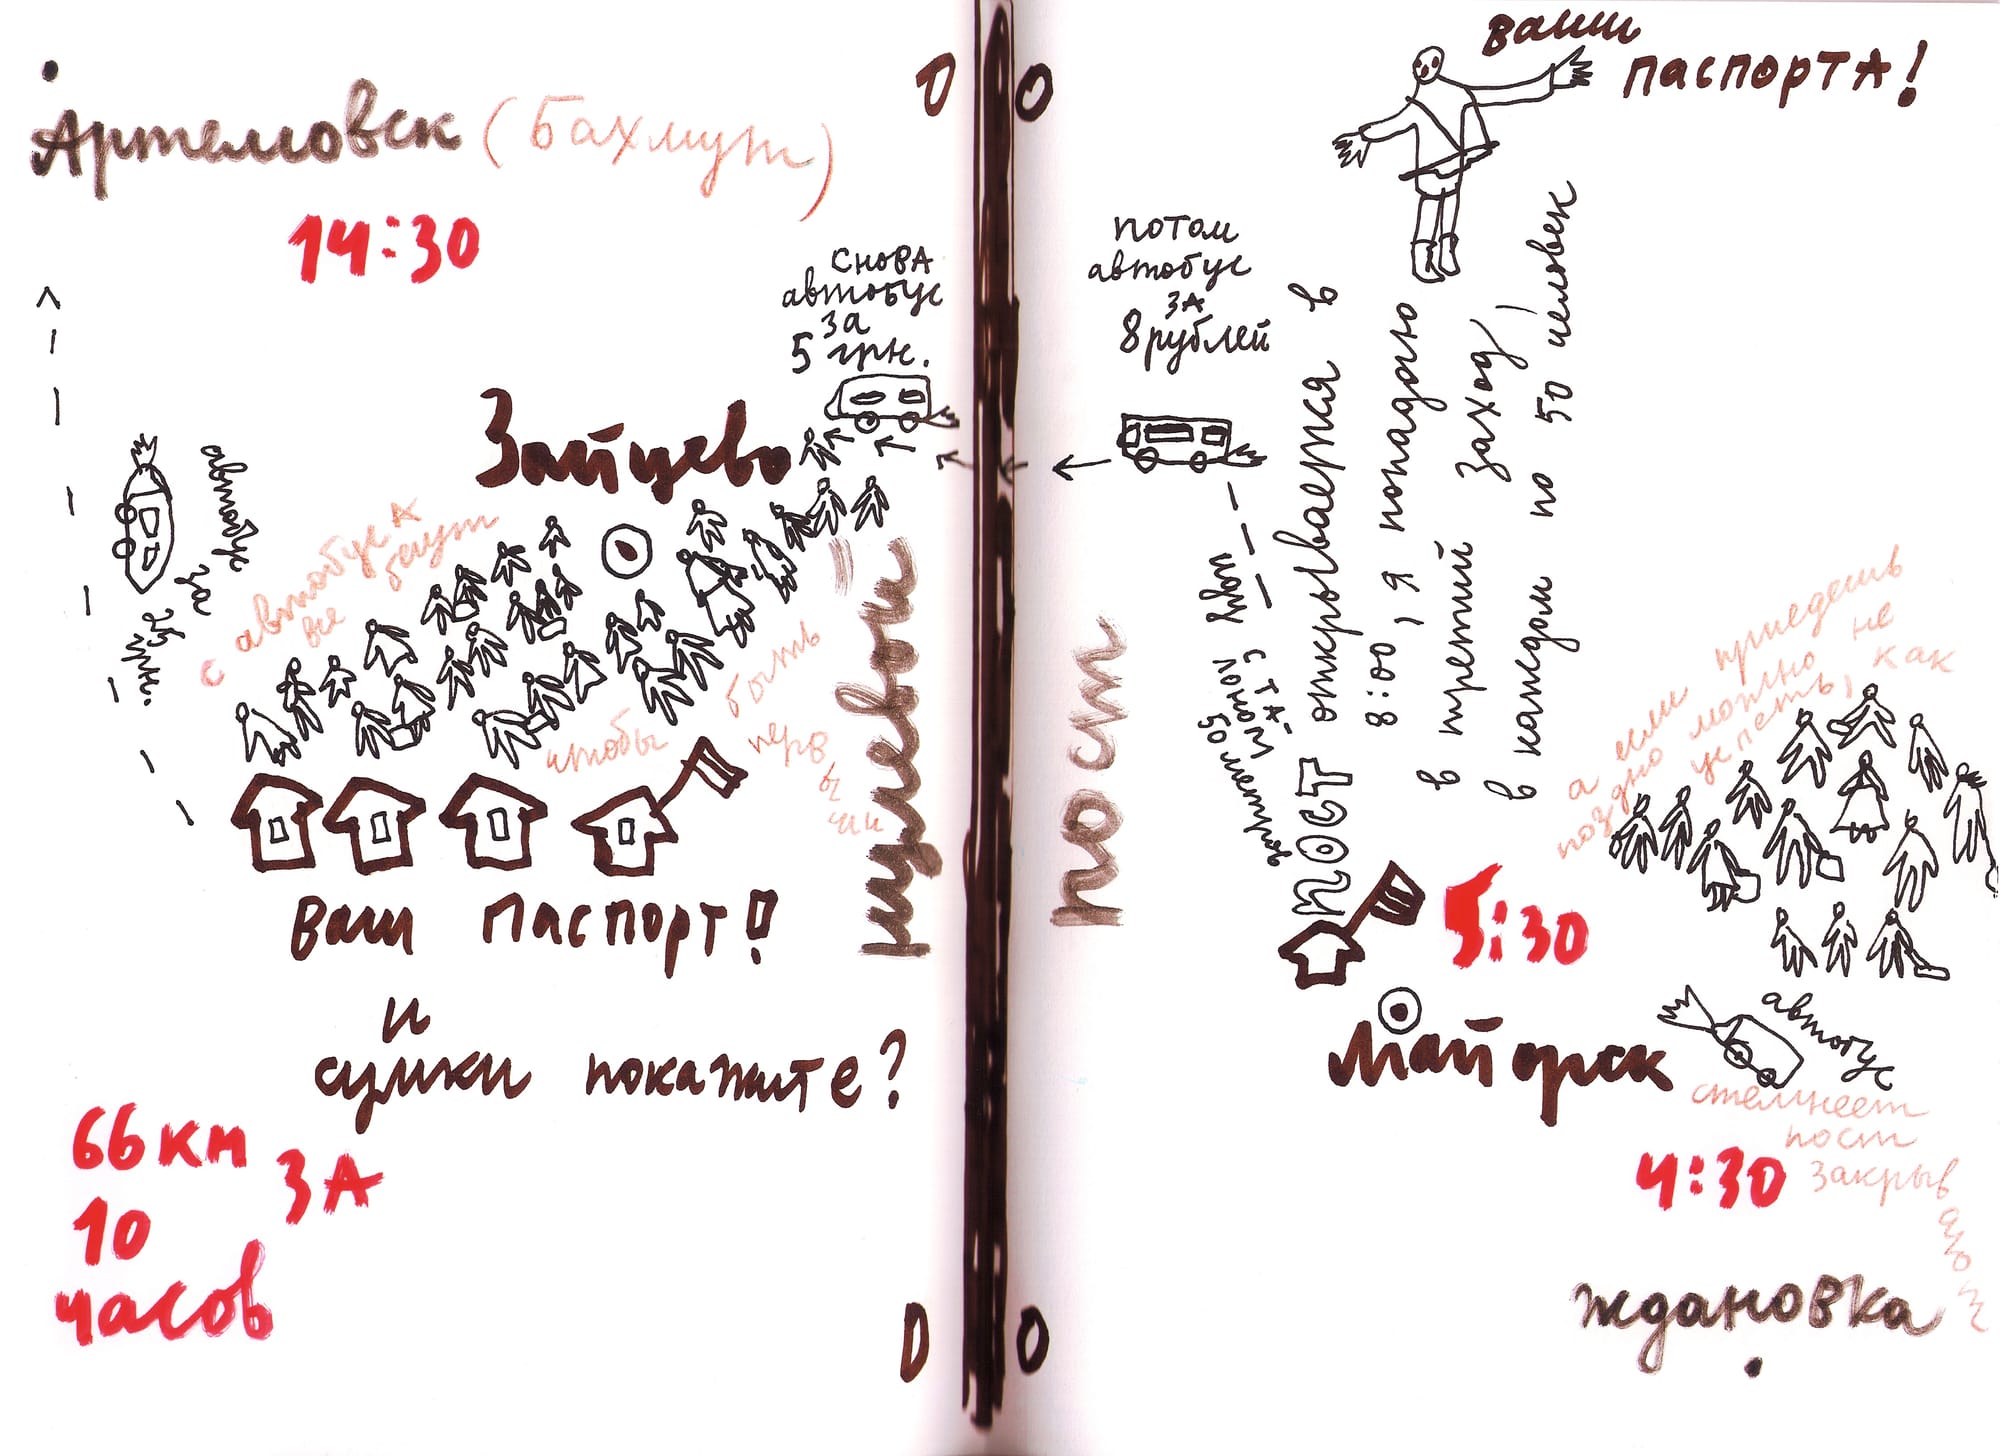 Артемовск (Бахмут)
14:30
снова
автобус
за
5 грн.
Зайцево
автобус
за
с автобуса
все бегут
чтобы
быть
первы
ми
Ваш паспорт!
и
сумки покажите?
66 км
за
10
часов
нулевой
пост
О О
О О
ваши
паспорта!
потом
автобус
за
8 рублей
иду пешком
50 метров
пост открывается в
8:00, я попадаю
в третий заход,
в каждом по 50 человек
а если приедешь
поздно можно не
успеть, как
5:30
Майорск
автобус
стемнеет
пост
закрыв
ают
4:30
Ждановка